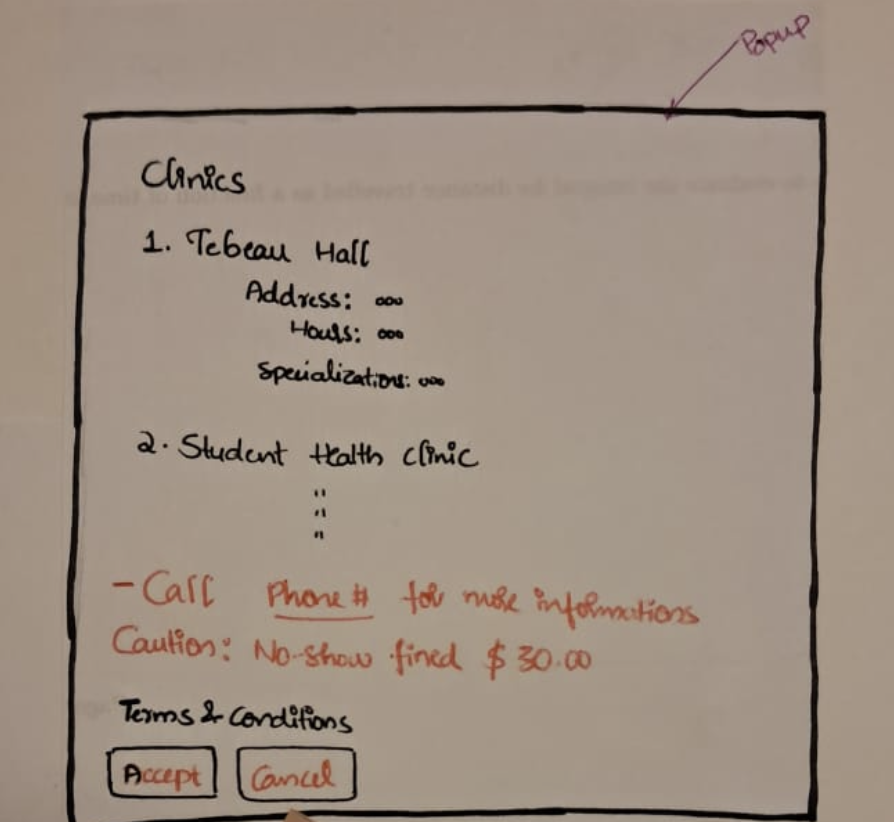 Popup
Clinics
1. Tebeau Hall
Address: ooo
Hours: ooo
Specializations: ooo
2. Student Health Clinic
"
"
"
- Call Phone # for more informations
Caution: No-show fined $30.00
Terms & Conditions
Accept Cancel